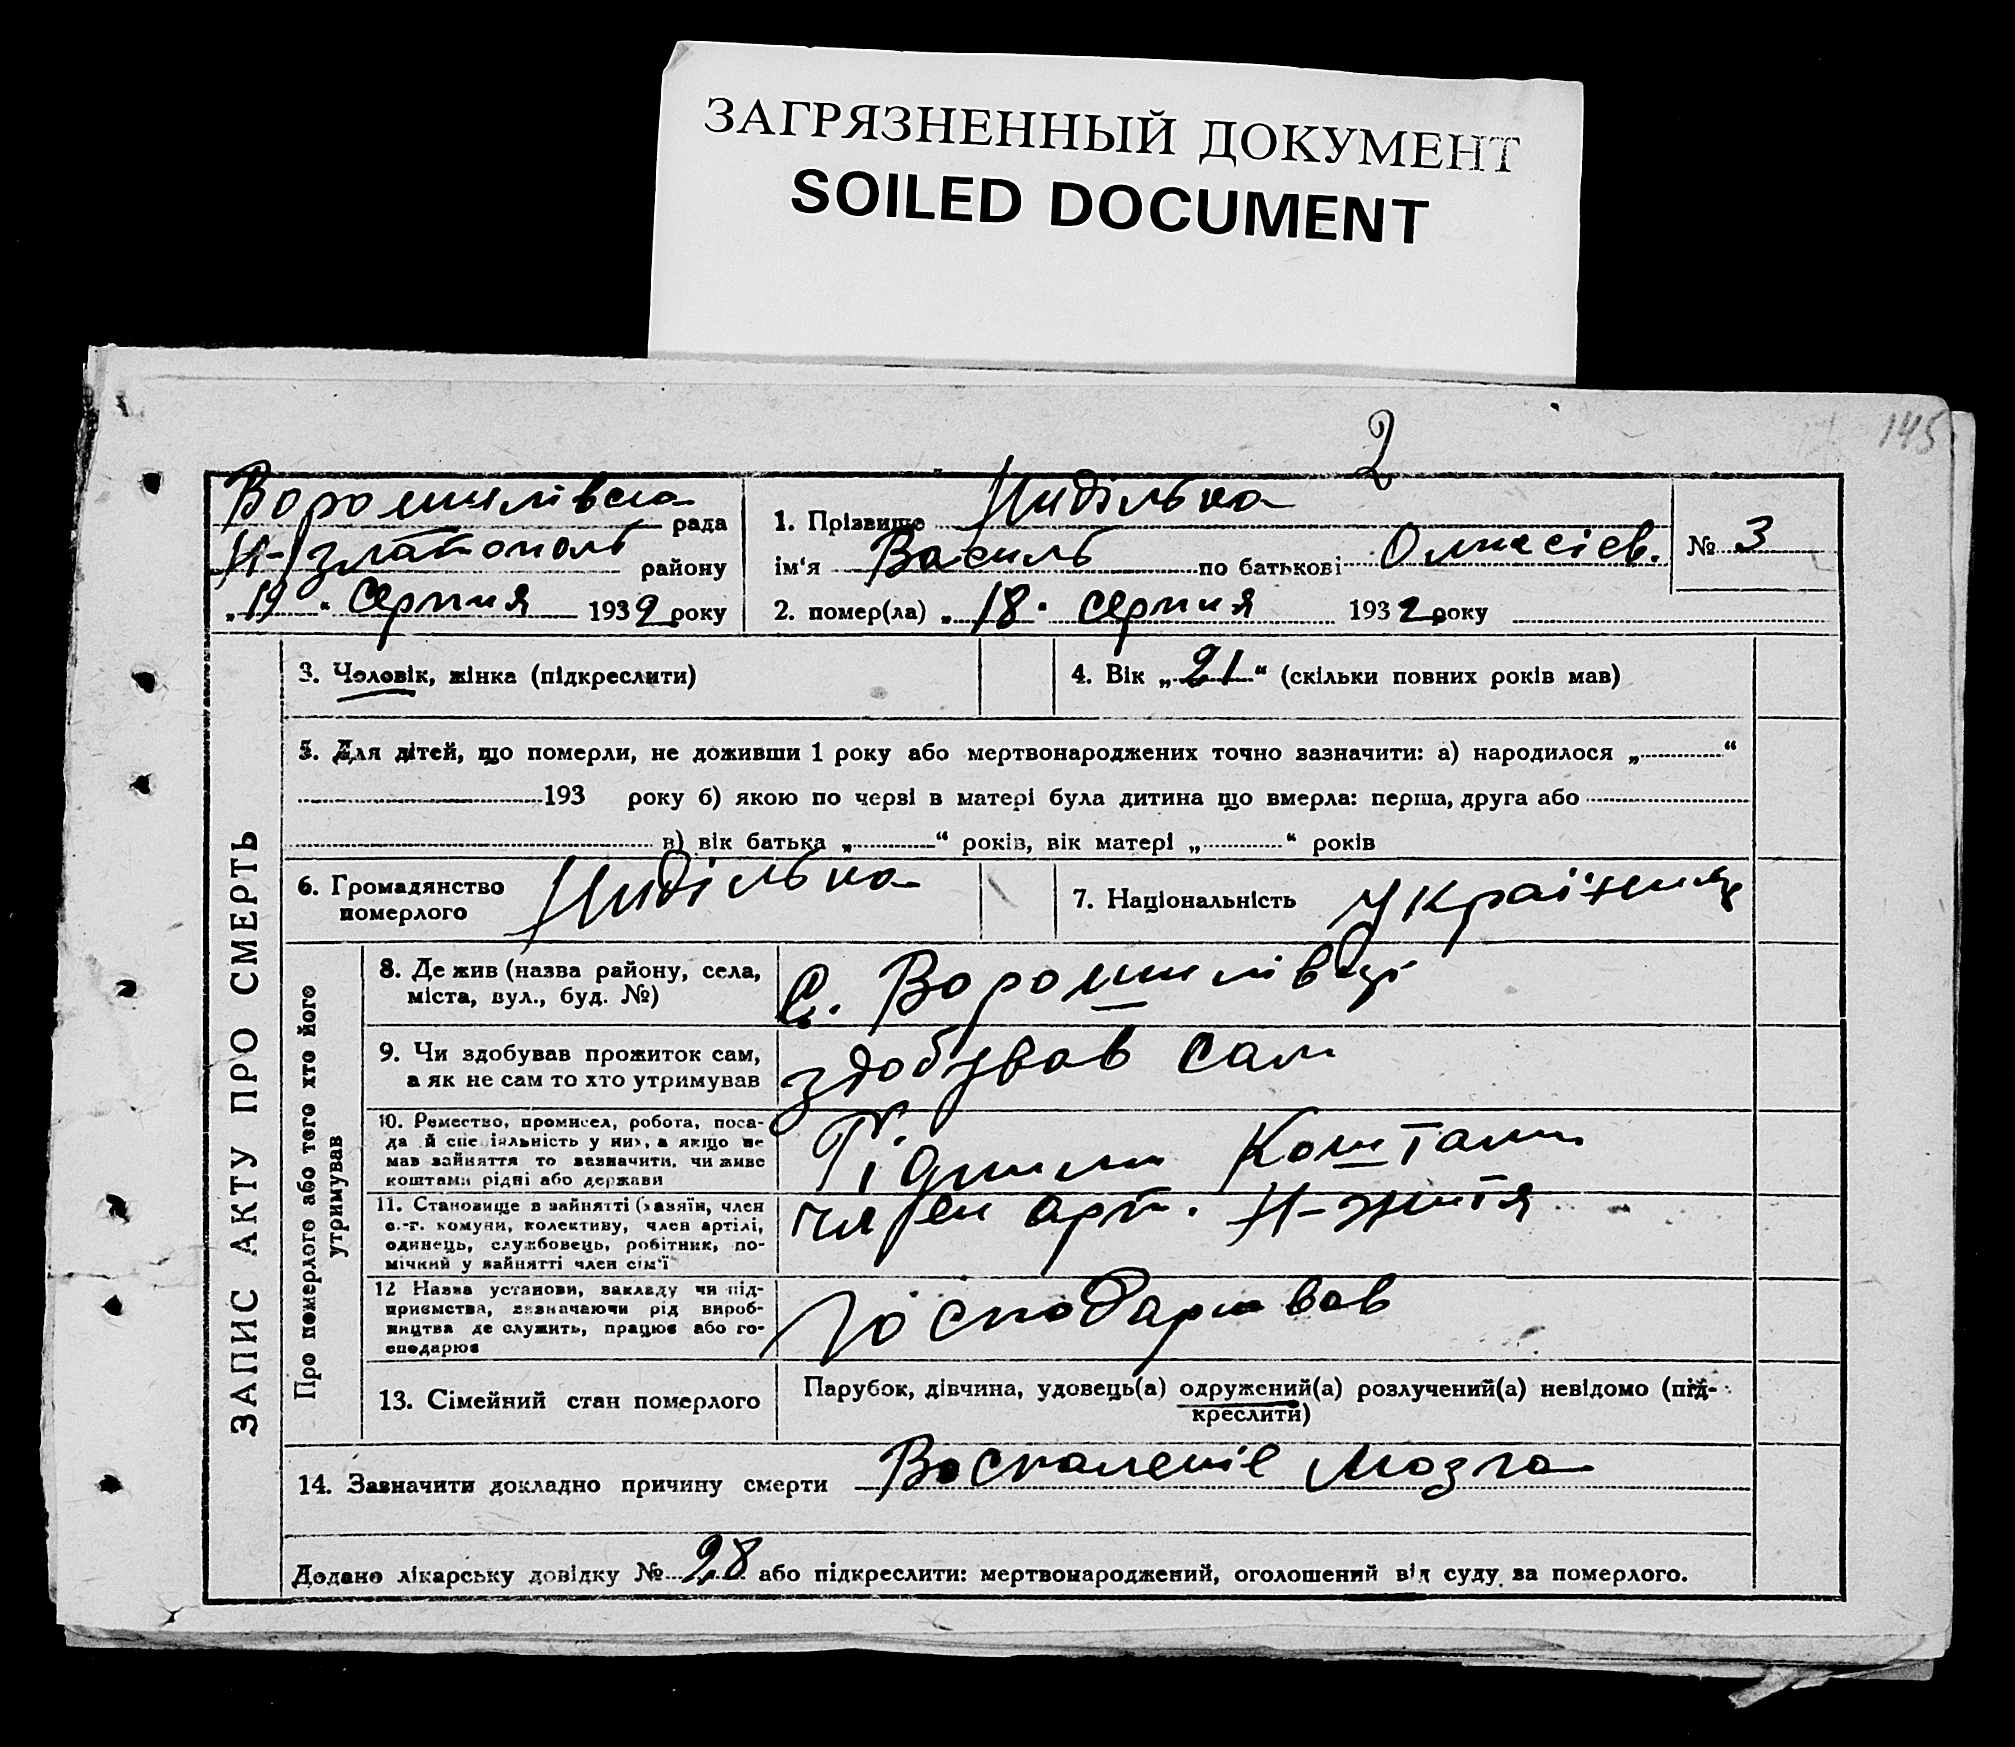 ЗАГРЯЗНЕННЫЙ ДОКУМЕНТ
SOILED DOCUMENT
2
145
Ворошилівська рада
Н-Златополь району
„19“ Серпня 1932 року
1. Прізвище Ниділька
ім‘я Василь по батькові
2. помер(ла) „18. серпня 1932 року
№ 3
ЗАПИС АКТУ ПРО СМЕРТЬ
3. Чоловік, жінка (підкреслити)
4. Вік „21“ (скільки повних років мав)
5. Для дітей, що померли, не доживши 1 року або мертвонароджених точно зазначити: а) народилося „ “
193 року б) якою по черві в матері була дитина що вмерла: перша, друга або
в) вік батька „ “ років, вік матері „ “ років
6. Громадянство померлого Ниділька
7. Національність Українец
Про померлого або того хто його утримував
8. Де жив (назва району, села,
міста, вул., буд. №)
с. Ворошилівці
9. Чи здобував прожиток сам,
а як не сам то хто утримував
здобував сам
10. Ремество, промисел, робота, поса-
да й спеціяльність у них, а якщо не
мав зайняття то зазначити, чи живе
коштами рідні або держави
Рідними Коштами
11. Становище в зайнятті (хазяїн, член
с.-г. комуни, колективу, член артілі,
одинець, службовець, робітник, по-
мічний у зайнятті член сім‘ї
член арт. Н-життя
12 Назва установи, закладу чи під-
приємства, зазначаючи рід вироб-
ництва де служить, працює або го-
сподарює
Господарював
13. Сімейний стан померлого
Парубок, дівчина, удовець(а) одружений(а) розлучений(а) невідомо (під-
креслити)
14. Зазначити докладно причину смерти Воспаленіє Мозга
Додано лікарську довідку № 28 або підкреслити: мертвонароджений, оголошений від суду за померлого.